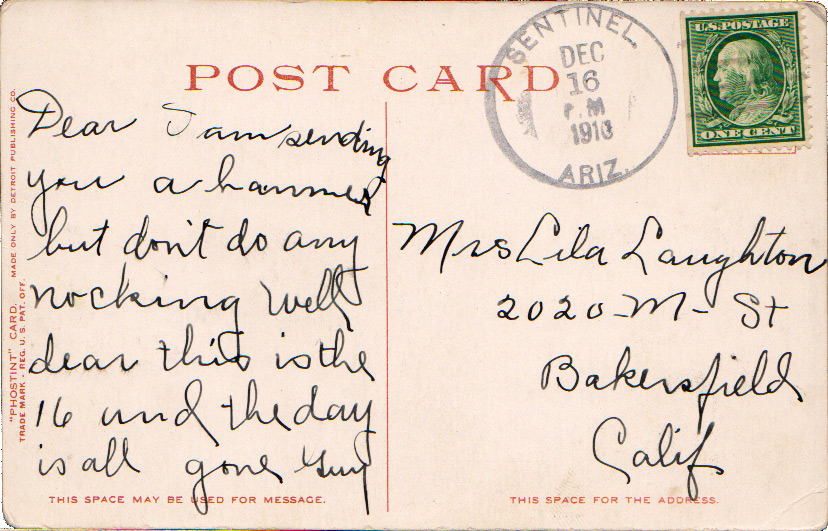 POST CARD
SENTINEL,
DEC
16
P.M
1910
ARIZ.
U.S. POSTAGE
ONE CENT
Dear I am sending
you a hammer
but don't do any
nocking well
dear this is the
16 und the day
is all gone Guy
Mrs Lila Laughton
2020-M-St
Bakersfield
Calif
"PHOSTINT" CARD. MADE ONLY BY DETROIT PUBLISHING CO.
TRADE MARK - REG. U.S. PAT. OFF.
THIS SPACE MAY BE USED FOR MESSAGE.
THIS SPACE FOR THE ADDRESS.